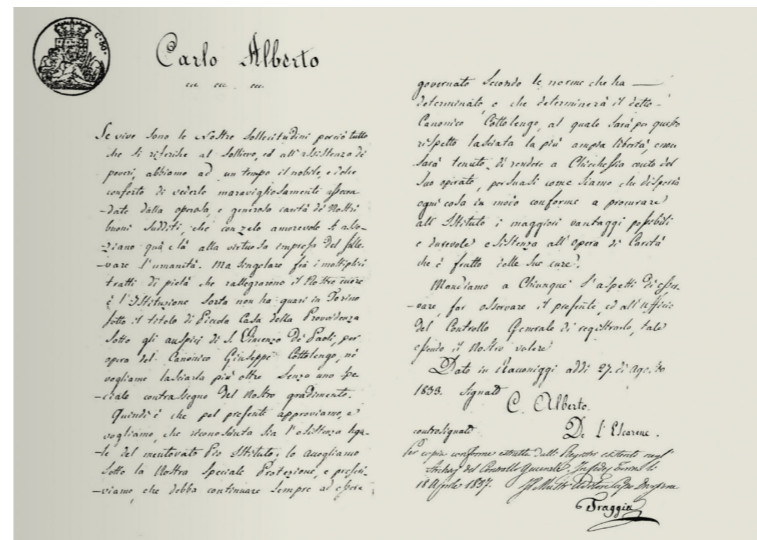 C. 50.
Carlo Alberto
ecc. ecc. ecc.
Se vive sono le Nostre Sollecitudini perciò tutto
che si riferisce al Sollievo, ed all'assistenza de'
poveri, abbiamo ad un tempo il nobile, e dolce
conforto di vederlo maravigliosamente assecon-
-dato dalla operosa, e generosa carità de' Nostri
buoni Sudditi, che con zelo amorevole s'asso-
-ziano quà e là alla virtuosa impresa del solle-
-vare l'umanità. Ma singolare fra i moltiplici
tratti di pietà che rallegrarono il Nostro cuore
è l'Istituzione sorta non ha guari in Torino
sotto il titolo di Piccola Casa della Provvidenza
sotto gli auspici di S. Vincenzo De Paoli, per
opera del Canonico Giuseppe Cottolengo, nè
vogliamo lasciarla più oltre senza uno spe-
-ciale contrassegno del Nostro gradimento.
Quindi è che pel presente approviamo, e
vogliamo, che riconosciuta sia l'esistenza lega-
-le del mentovato Pio Istituto; lo accogliamo
sotto la Nostra Speciale Protezione, e prescri-
-viamo, che debba continuare sempre ad essere
governato secondo le norme che ha
determinato, e che determinerà il detto
Canonico Cottolengo, al quale sarà per questo
rispetto lasciata la più ampia libertà, e non
sarà tenuto di rendere a Chichessia conto del
suo operato, persuasi come siamo che disporrà
ogni cosa in modo conforme a procurare
all'Istituto i maggiori vantaggi possibili
e durevole esistenza all'opera di Carità
che è frutto delle sue cure.
Mandiamo a Chiunque s'aspetti di osser-
-vare, far osservare il presente, ed all'Ufficio
del Controllo Generale di registrarlo, tale
essendo il Nostro volere
Dato in Racconiggi addì 27. di Agosto
1833. Signato
C. Alberto.
controsignato De L'Escarene.
Per copia conforme estratta dalli Registri esistenti negli
Archivj del Controllo Generale. In fede, Torino li
18 Aprile 1837.
Traggia